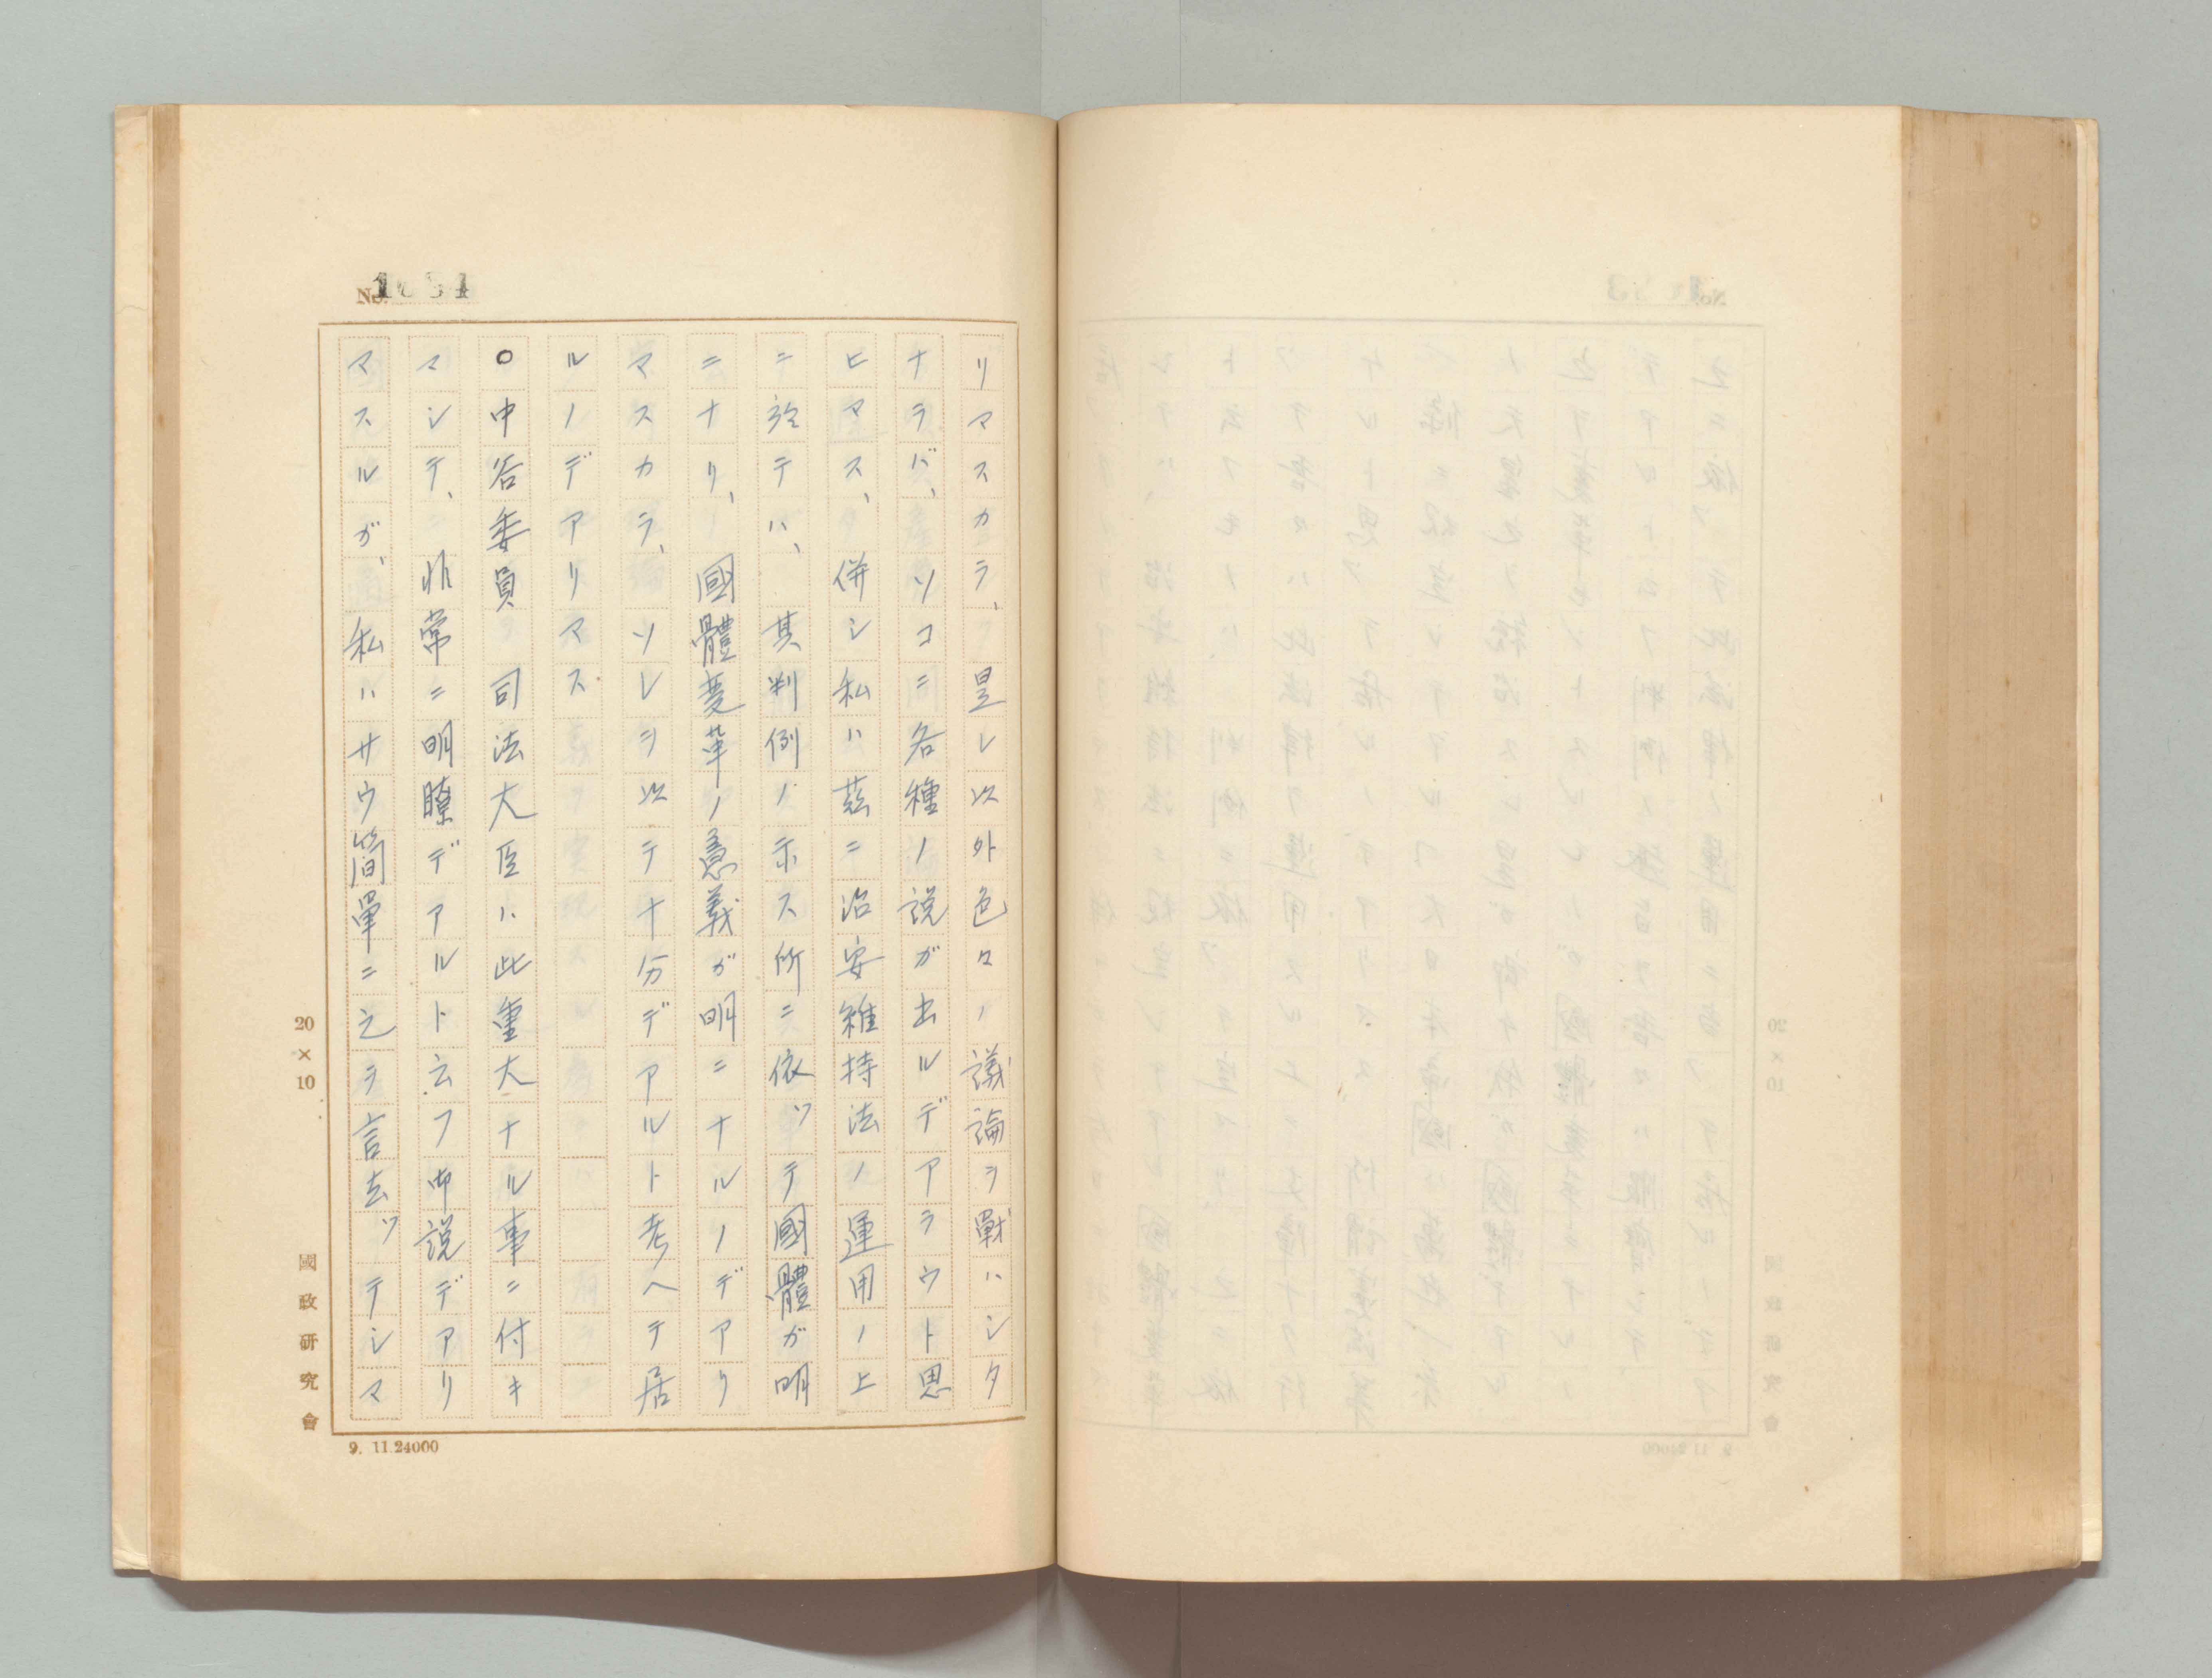 No. 1084
リマスカラ、是レ以外色々ノ議論ヲ戰ハシタ
ナラバ、ソコニ各種ノ說ガ出ルデアラウト思
ヒマス、併シ私ハ茲ニ治安維持法ノ運用ノ上
ニ於テハ、其判例ノ示ス所ニ依ッテ國體ガ明
ニナリ、國體變革ノ意義ガ明ニナルノデアリ
マスカラ、ソレヲ以テ十分デアルト考ヘテ居
ルノデアリマス
○中谷委員 司法大臣ハ此重大ナル事ニ付キ
マシテ、非常ニ明瞭デアルト云フ御說デアリ
マスルガ、私ハサウ簡單ニ之ヲ言去ッテシマ
20×10
國政研究會
9. 11.24000